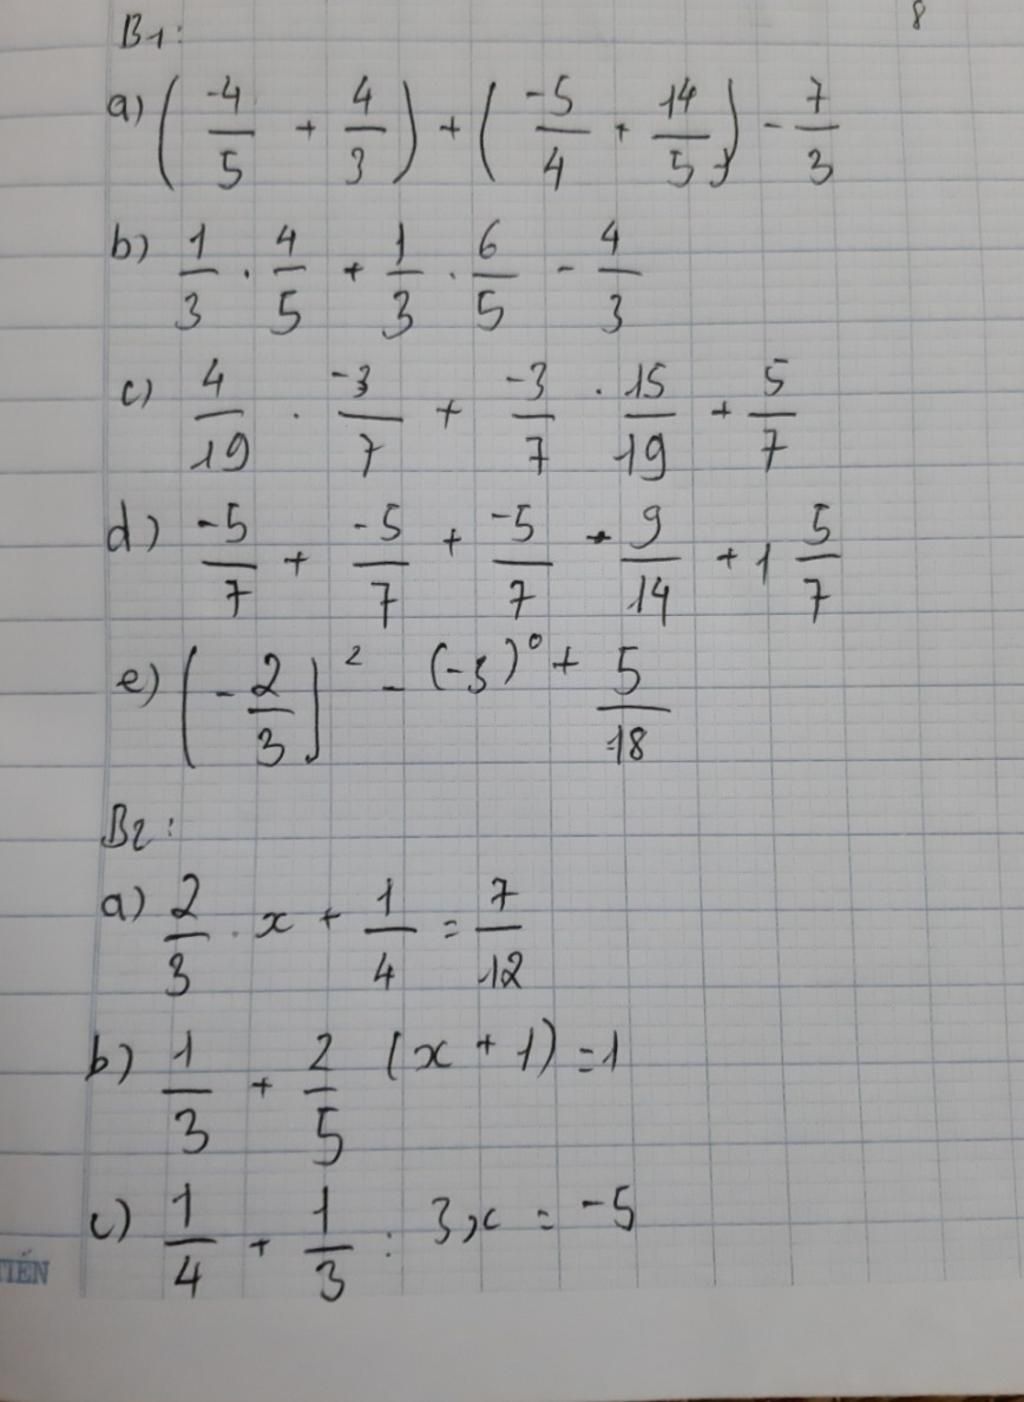 8
B1:
a) (-4/5 + 4/3) + (-5/4 + 14/5) - 7/3
b) 1/3 . 4/5 + 1/3 . 6/5 - 4/3
c) 4/19 . -3/7 + -3/7 . 15/19 + 5/7
d) -5/7 + -5/7 + -5/7 . 9/14 + 1 5/7
e) (-2/3)² - (-3)⁰ + 5/18
B2:
a) 2/3 . x + 1/4 = 7/12
b) 1/3 + 2/5 (x + 1) = 1
c) 1/4 + 1/3 : 3x = -5
TIẾN